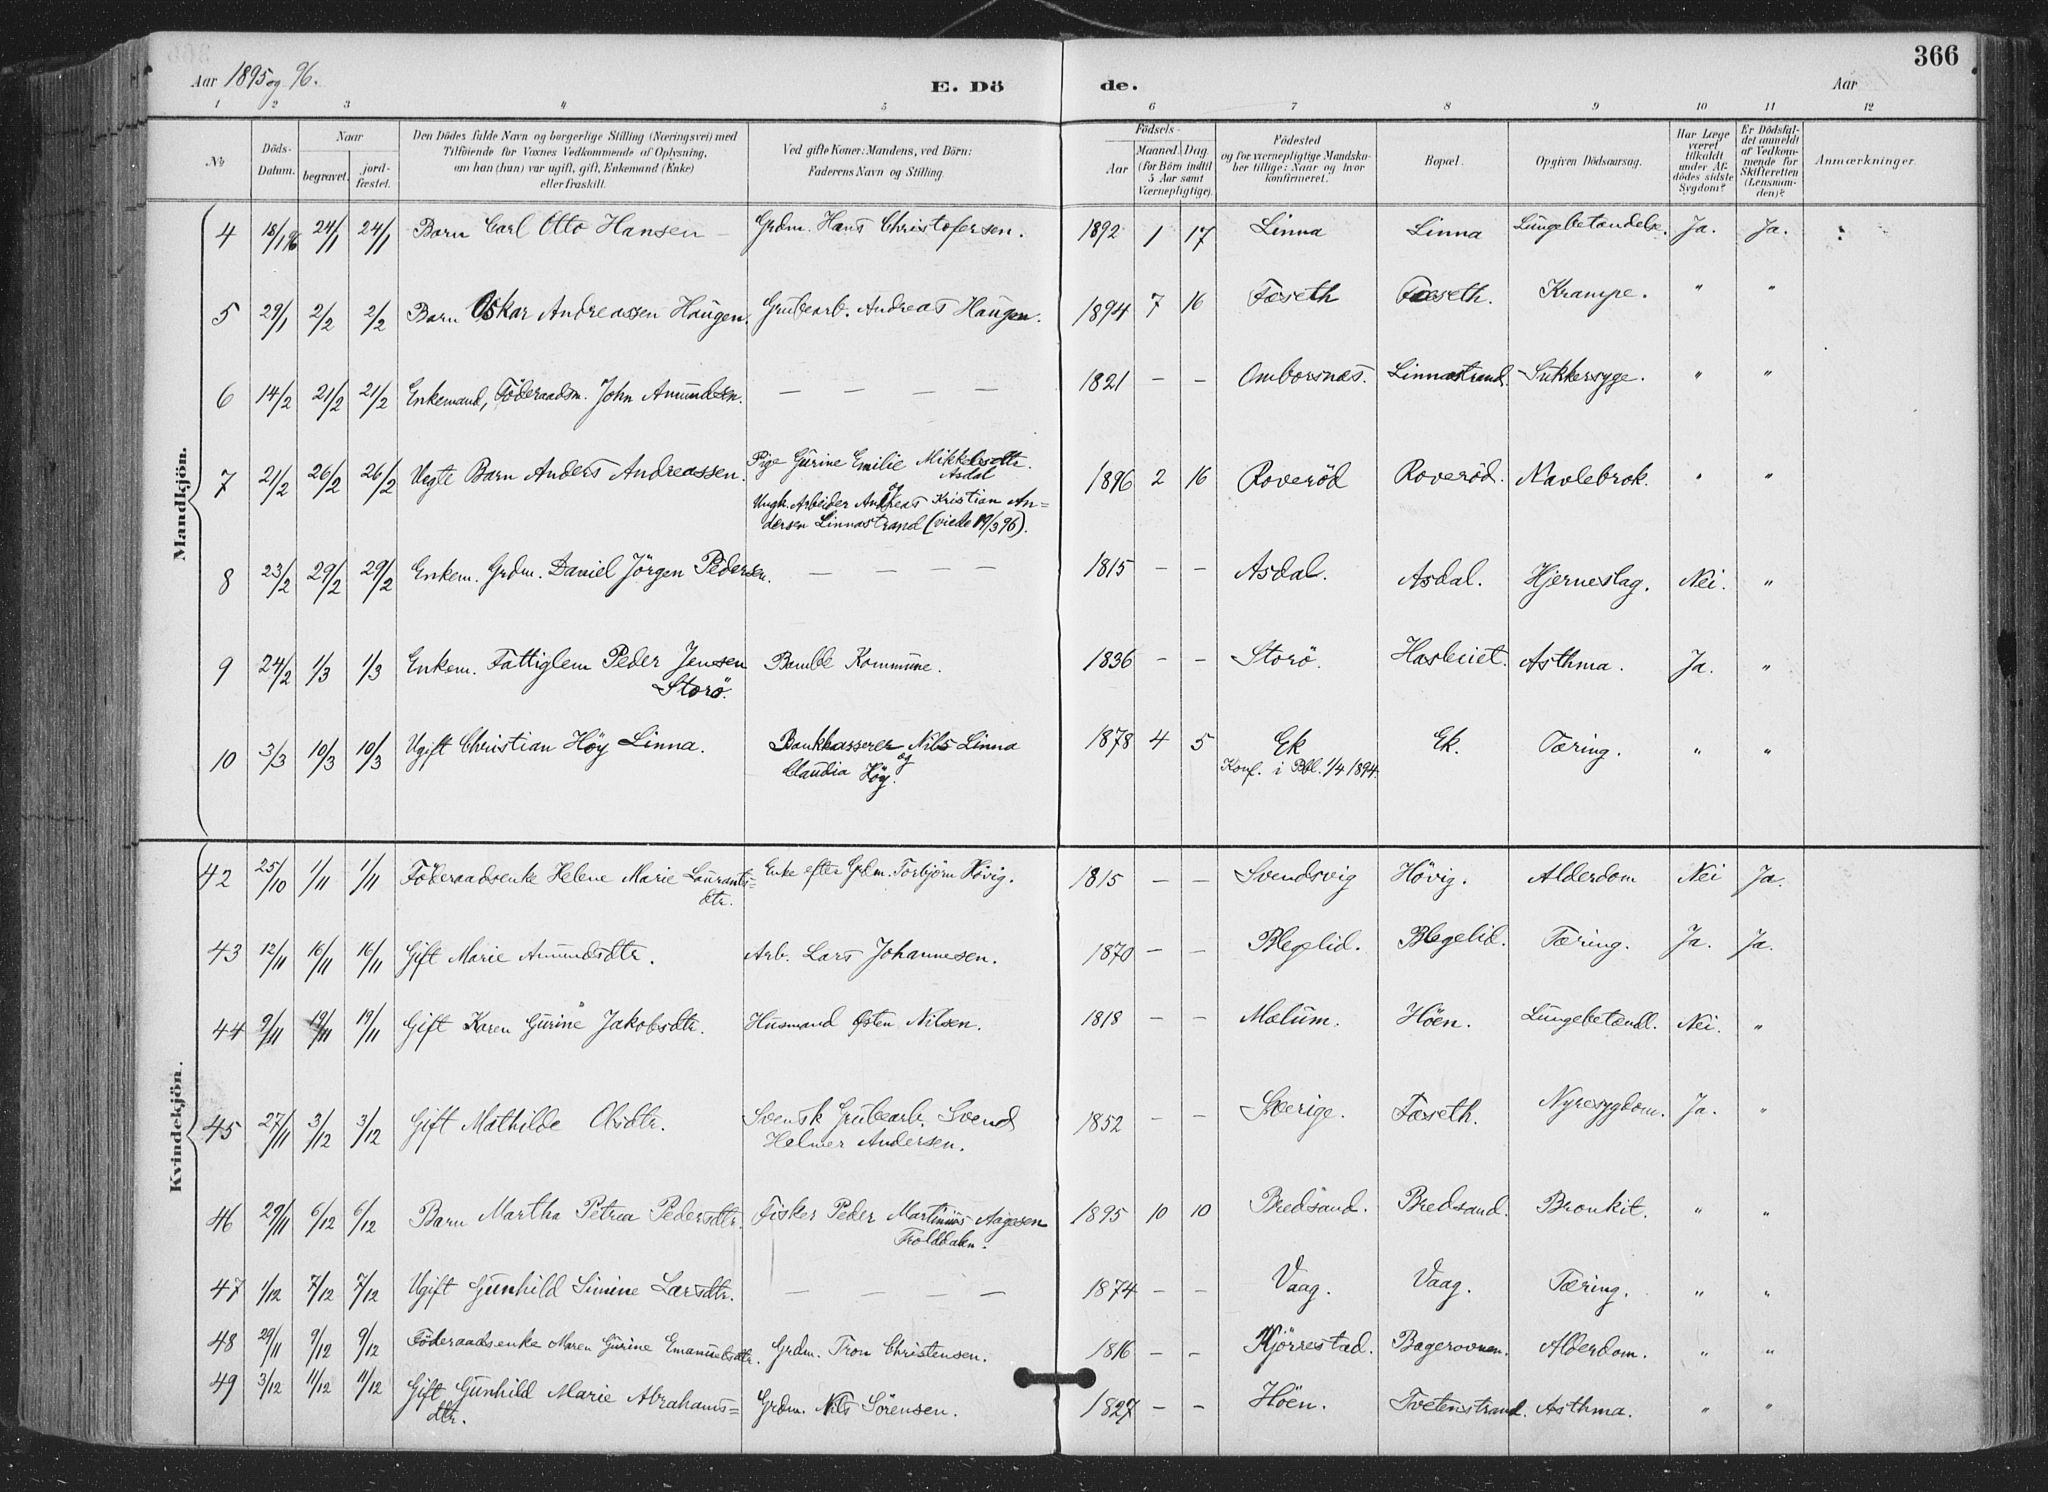 Aar 1895 og 96. E. Dö de. Aar 366
1 2 3 4 5 6 7 8 9 10 11 12
No
Döds-Datum.
Naar begravet. jord-fæstet.
Den Dödes fulde Navn og borgerlige Stilling (Næringsvei) med
Tilföiende for Voxnes Vedkommende af Oplysning,
om han (hun) var ugift, gift, Enkemand (Enke)
eller fraskilt.
Ved gifte Koner: Mandens, ved Börn:
Faderens Navn og Stilling.
Födsels-
Aar Maaned. Dag.
(for Börn indtil
5 Aar samt
Værnepligtige).
Födested
og for værnepligtige Mandska-
ber tillige: Naar og hvor
konfirmeret.
Bopæl.
Opgiven Dödsaarsag.
Har Læge
været
tilkaldt
under Af-
dödes sidste
Sygdom?
Er Dödsfal-
det anmeldt
af Vedkom-
mende for
Skifteretten
(Lensman-
den)?
Anmærkninger.
Mandkjön.
4 18/1 96 24/1 24/1 Barn Carl Otto Hansen – Grdm. Hans Christofersen. 1892 1 17 Linna Linna Lungebetændelse. Ja. Ja.
5 29/1 2/2 2/2 Barn Oskar Andreassen Haugen. Grubearb. Andreas Haugen. 1894 7 16 Fæseth Fæseth. Krampe. " "
6 14/2 21/2 21/2 Enkemand, Föderaadsm. John Amundsen. — — — — 1821 – – Omborsnæs. Linnastrand. Sukkersyge. " "
7 21/2 26/2 26/2 Uegte Barn Anders Andreassen. Pige Gurine Emilie Mikkelsdtr. 1896 2 16 Roverød Roverød. Navlebrok. " "
Asdal
og
Ungk. Arbeider Andreas Kristian An=
dersen Linnastrand (viede 19/3 96).
8 23/2 29/2 29/2 Enkem. Grdm. Daniel Jörgen Pedersen. — — — — 1815 – – Asdal. Asdal. Hjerneslag. Nei. "
9 24/2 1/3 1/3 Enkem. Fattiglem Peder Jensen Bamble Kommune. 1836 – – Storø. Hasleiet. Asthma. Ja. "
Storø.
10 3/3 10/3 10/3 Ugift Christian Höy Linna. Bankkasserer Nils Linna 1878 4 5 Ek Ek. Tæring. " "
og
Claudia Höy. Konf. i Bbl. 1/4 1894.
Kvindekjön.
42 25/10 1/11 1/11 Föderaadsenke Helene Marie Laurants= Enke efter Grdm. Torbjörn Hövig. 1815 – – Svendsvig Hövig. Alderdom Nei Ja.
dtr.
43 12/11 16/11 16/11 Gift Marie Amundsdtr. Arb. Lars Johannesen. 1870 – – Blegelid. Blegelid. Tæring. Ja. Ja.
44 9/11 19/11 19/11 Gift Karen Gurine Jakobsdtr. Husmand Østen Nilsen. 1818 – – Mælum. Höen. Lungebetændl. Nei. "
45 27/11 3/12 3/12 Gift Mathilde Olsdtr. Svensk Grubearb. Svend 1852 – – Sverige. Fæseth. Nyresygdom. Ja. "
Helmer Andersen.
46 29/11 6/12 6/12 Barn Martha Petrea Pedersdtr. Fisker Peder Martinius Aagesen 1895 10 10 Bredsand. Bredsand. Bronkit. " "
Trolddalen.
47 1/12 7/12 7/12 Ugift Gunhild Simine Larsdtr. — — — — 1874 – – Vaag. Vaag. Tæring. " "
48 29/11 9/12 9/12 Föderaadsenke Maren Gurine Emanuelsdtr. Grdm. Tron Christensen. 1816 – – Kjörrestad. Bagerovnen. Alderdom. " "
49 3/12 11/12 11/12 Gift Gunhild Marie Abrahams= Grdm. Nils Sörensen. 1827 – – Höen. Tvetenstrand. Asthma. " "
dtr.